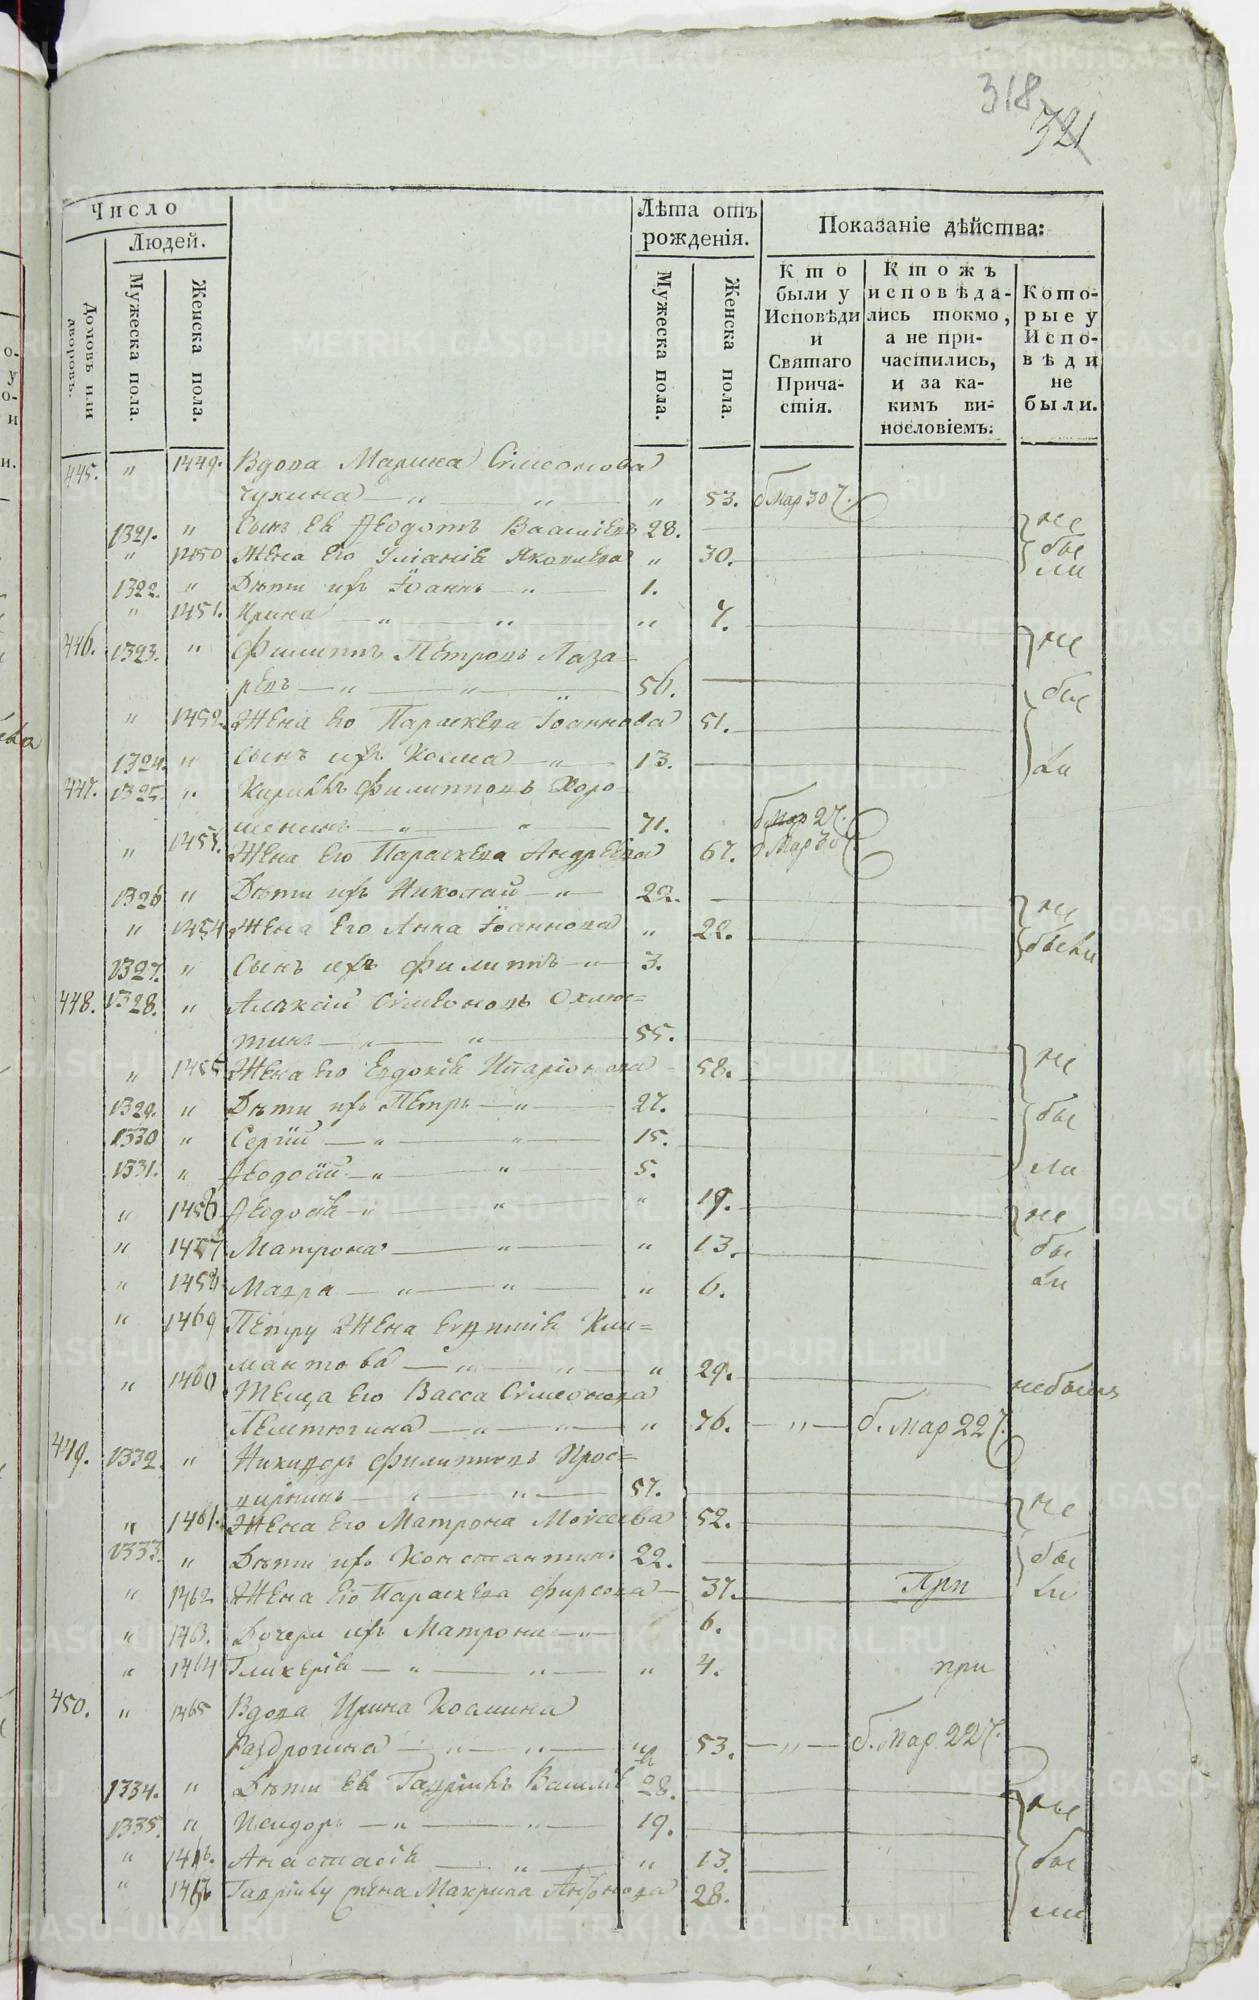 318
321
Число
Людей.
Домовъ или дворовъ.
Мужеска пола.
Женска пола.
Лѣта отъ рожденія.
Мужеска пола.
Женска пола.
Показаніе дѣйства:
Кто были у Исповѣди и Святаго Причастія.
Ктожъ исповѣдались токмо, а не причастились, и за какимъ винословіемъ:
Которые у Исповѣди не были.
445. " 1449. Вдова Марина Симеонова
Чухина — " — " — " 53. б Мар 30
1321. " Сынъ Ея Ѳеодотъ Василіевъ 28. не
" 1450 Жена Его Уліанія Яковлева " 30. бы
1322. " Дѣти ихъ Іоаннъ — " — 1. ли
" 1451. Ирина — " — " " 7.
446. 1323. " Филиппъ Петровъ Лаза= не
ревъ — " — " — " 56.
" 1452. Жена Его Параскева Іоаннова 51. бы
1324. " Сынъ ихъ Косма — " — 13. ли
447. 1325. " Кирикъ Филипповъ Хоро-
шенинъ — " — " — 71. б Мар 27.
" 1453. Жена Его Параскева Андреева 67. б Мар 30
1326 " Дѣти ихъ Николай — " — 22. не
" 1454 Жена Его Анна Іоаннова " 22. были
1327. " Сынъ ихъ Филиппъ — " 3.
448. 1328. " Алексій Симеоновъ Охлюс=
тинъ — " — " — 55.
" 1455 Жена Его Евдокія Иларіонова 58. не
1329. " Дѣти ихъ Петръ — " — 27. бы
1330 " Сергій — " — " — 15.
1331. " Ѳеодосій — " — " — 5. ли
" 1456 Ѳеодосія — " — " — " 19. не
" 1457 Матрона — " — " 13. бы
" 1458 Мавра — " — " — " 6. ли
" 1459 Петру Жена Евдокія Кли=
мантова — " — " — " 29. небыла
" 1460 Теща Его Васса Симеонова
Лелетюгина — " — " — " 76. — " — б. Мар 22
449. 1332. " Никифоръ Филипповъ Прос=
вирнинъ — " — " — 57. не
" 1461. Жена Его Матрона Моисеева 52.
1333. " Дѣти ихъ Константинъ 22. бы
" 1462 Жена Его Параскева Фирсова — 37. При ли
" 1463. Дочери ихъ Матрона — " — 6.
" 1464 Гликерія — " — " — " 4. при
450. " 1465 Вдова Ирина Косьмина
Раздрогина — " — " — " 53. — " — б. Мар 22
1334. " Дѣти Ея Гавріилъ Василіевъ 28. не
1335. " Исидоръ — " — " — 19.
" 1466. Анастасія — " — " 13. бы
" 1467 Гавріилу жена Макрина Антонова 28. ли